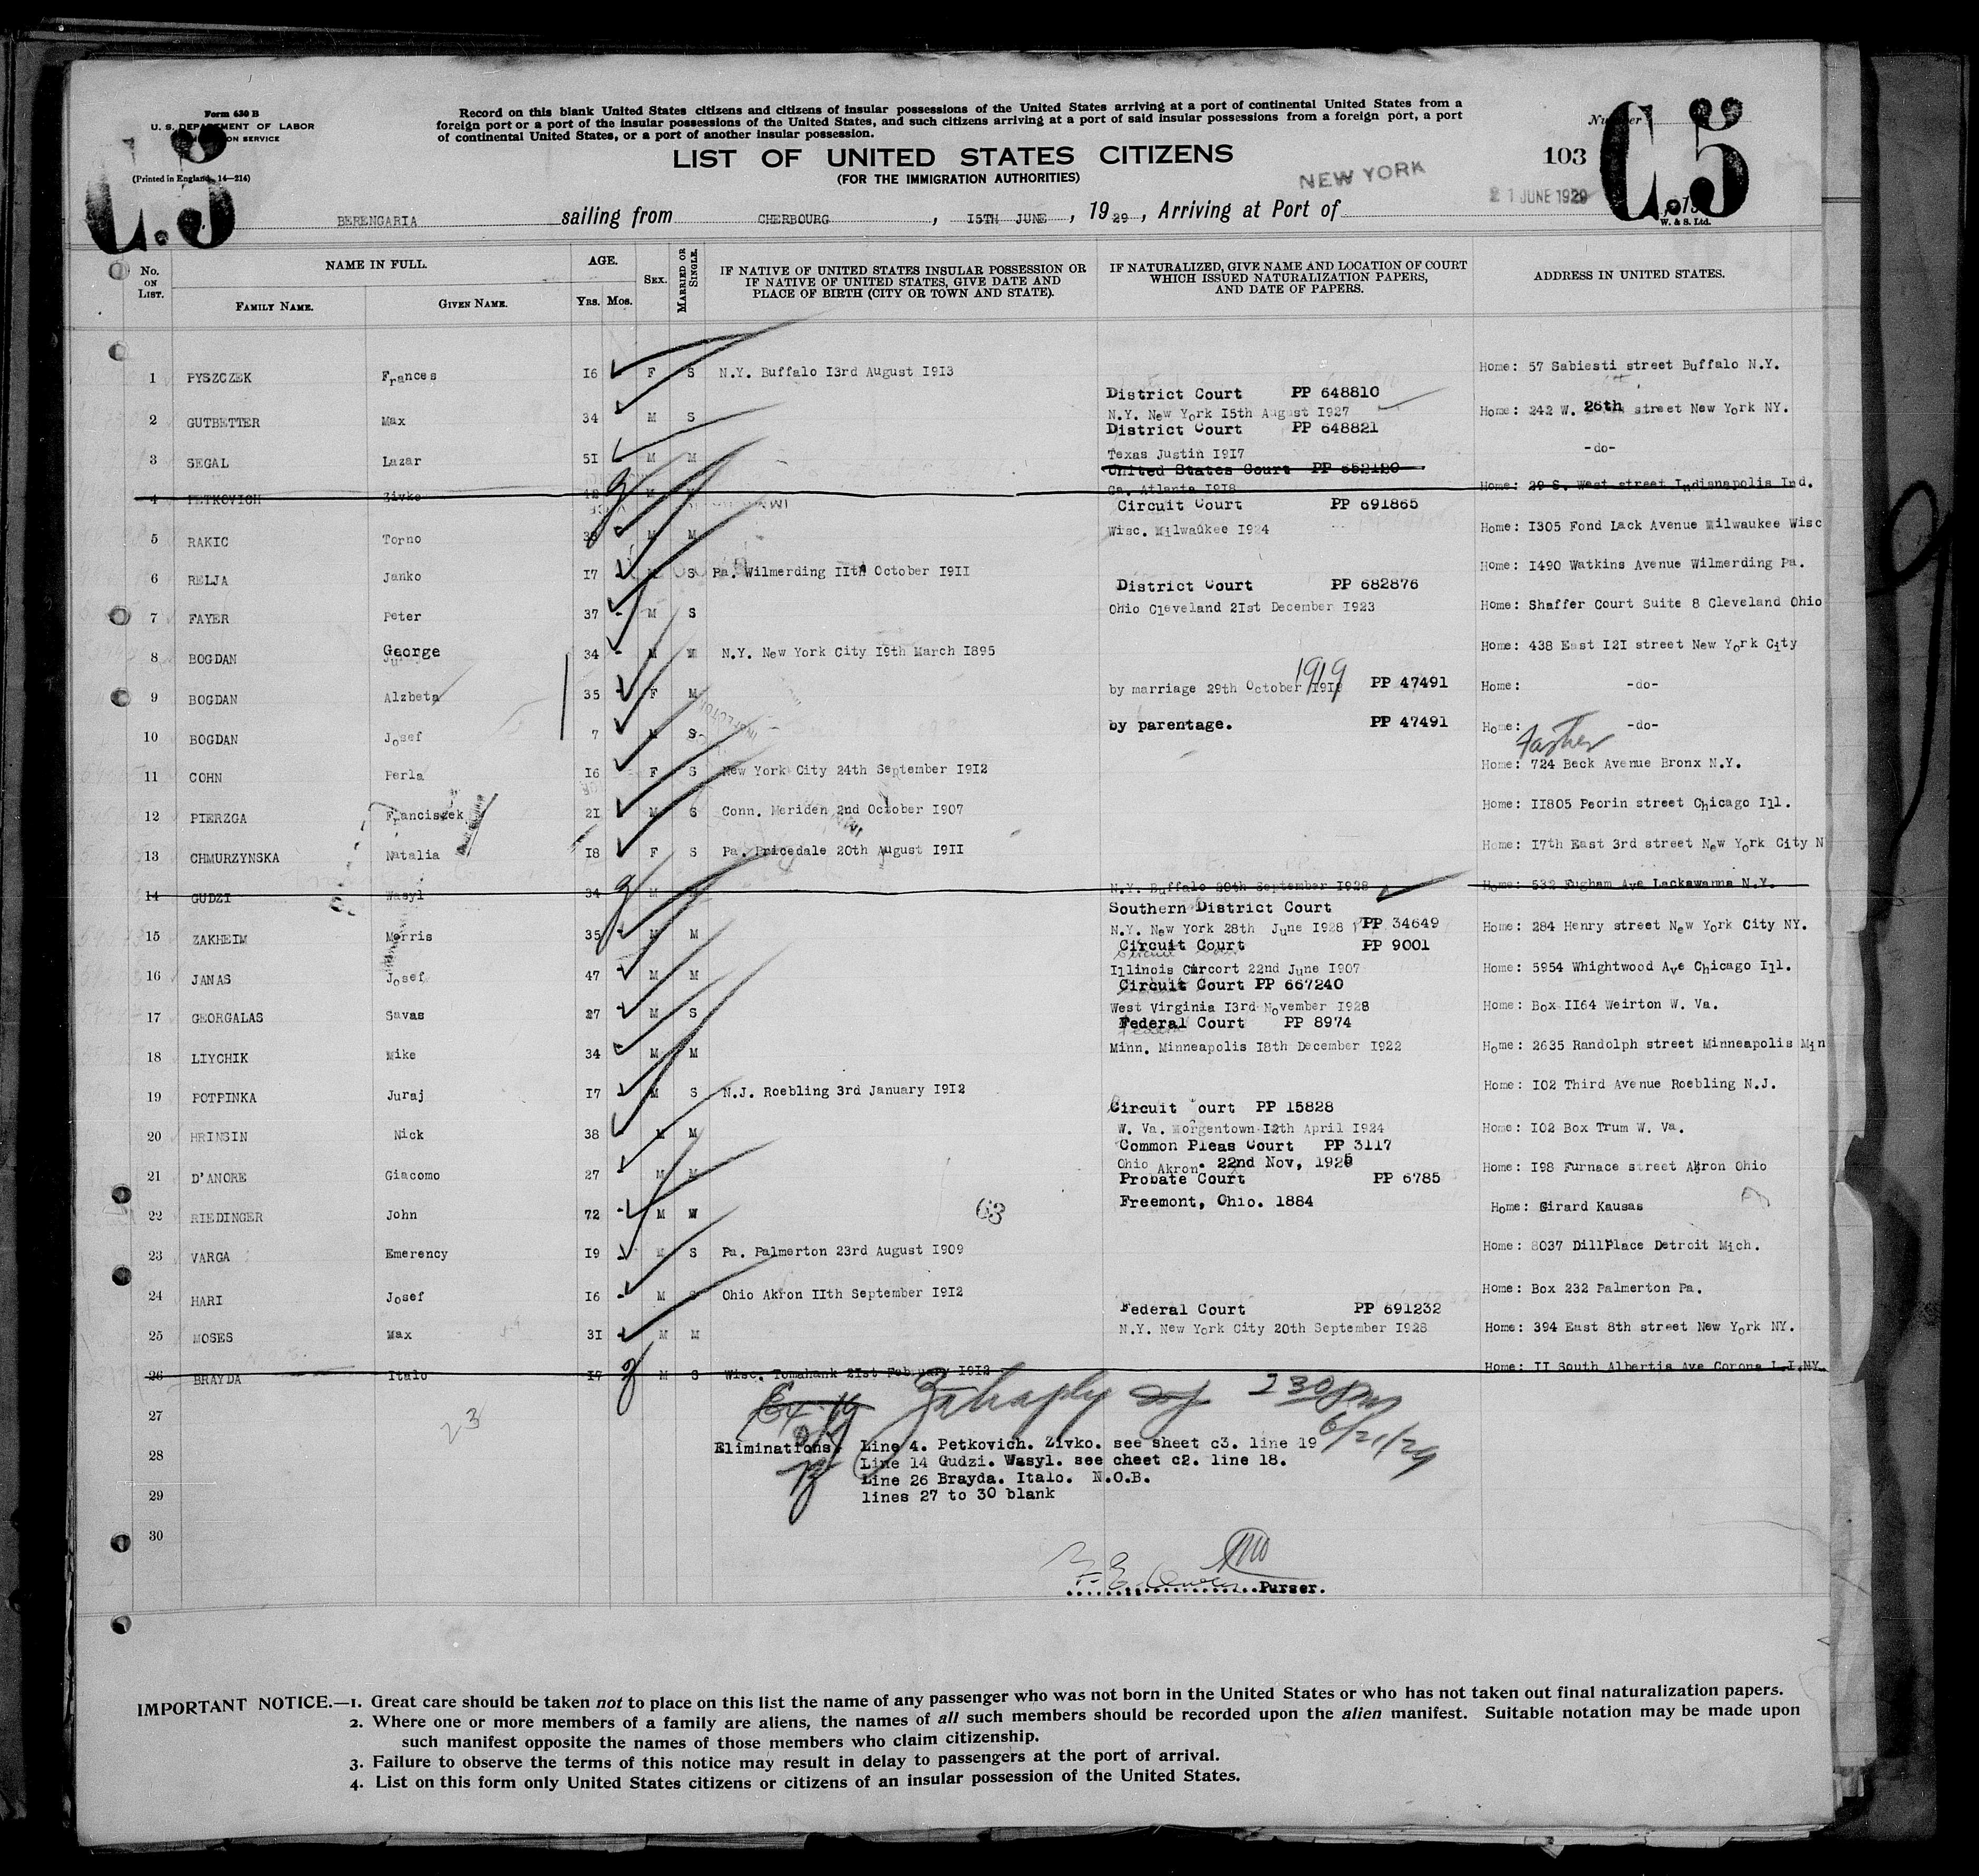 Form 630 B
U. S. DEPARTMENT OF LABOR
ION SERVICE
(Printed in England, 14—214)
Record on this blank United States citizens and citizens of insular possessions of the United States arriving at a port of continental United States from a
foreign port or a port of the insular possessions of the United States, and such citizens arriving at a port of said insular possessions from a foreign port, a port
of continental United States, or a port of another insular possession.
LIST OF UNITED STATES CITIZENS
(FOR THE IMMIGRATION AUTHORITIES)
Number
103
C.5
C.5
NEW YORK
21 JUNE 1929
W. & S. Ltd.
BERENGARIA sailing from CHERBOURG , I5TH JUNE , 19 29 , Arriving at Port of
No. ON LIST.
NAME IN FULL.
FAMILY NAME.
GIVEN NAME.
AGE.
Yrs. Mos.
SEX.
MARRIED OR SINGLE.
IF NATIVE OF UNITED STATES INSULAR POSSESSION OR
IF NATIVE OF UNITED STATES, GIVE DATE AND
PLACE OF BIRTH (CITY OR TOWN AND STATE).
IF NATURALIZED, GIVE NAME AND LOCATION OF COURT
WHICH ISSUED NATURALIZATION PAPERS,
AND DATE OF PAPERS.
ADDRESS IN UNITED STATES.
1 PYSZCZEK Frances I6 F S N.Y. Buffalo I3rd August I9I3 Home: 57 Sabiesti street Buffalo N.Y.
District Court PP 648810
2 GUTBETTER Max 34 M S N.Y. New York I5th August I927 Home: 242 W. 26th street New York NY.
District Court PP 648821
3 SEGAL Lazar 5I M M Texas Justin I9I7 -do-
United States Court PP 652190
4 PETKOVICH Zivko M Ga. Atlanta I9I8 Home: 29 S. West street Indianapolis Ind.
Circuit Court PP 691865
5 RAKIC Torno M M Wisc. Milwaukee I924 Home: I305 Fond Lack Avenue Milwaukee Wisc
6 RELJA Janko I7 M S Pa. Wilmerding IIth October I9II Home: I490 Watkins Avenue Wilmerding Pa.
District Court PP 682876
7 FAYER Peter 37 M S Ohio Cleveland 2Ist December I923 Home: Shaffer Court Suite 8 Cleveland Ohio
8 BOGDAN George 34 M M N.Y. New York City I9th March I895 Home: 438 East I2I street New York City
1919
9 BOGDAN Alzbeta 35 F M by marriage 29th October I919 PP 47491 Home: -do-
10 BOGDAN Josef 7 M S by parentage. PP 47491 Home: -do-
Father
11 COHN Perla I6 F S New York City 24th September I9I2 Home: 724 Beck Avenue Bronx N.Y.
12 PIERZGA Franciszek 2I M S Conn. Meriden 2nd October I907 Home: II805 Peorin street Chicago Ill.
13 CHMURZYNSKA Natalia I8 F S Pa. Pricedale 20th August I9II Home: I7th East 3rd street New York City N
14 GUDZI Wasyl 34 M N.Y. Buffalo 20th September I928 Home: 532 Fugham Ave Lackawanna N.Y.
Southern District Court
15 ZAKHEIM Morris 35 M M N.Y. New York 28th June I928 PP 34649 Home: 284 Henry street New York City NY.
Circuit Court PP 9001
16 JANAS Josef 47 M M Illinois Circort 22nd June I907 Home: 5954 Whightwood Ave Chicago Ill.
Circuit Court PP 667240
17 GEORGALAS Savas 27 M S West Virginia I3rd November I928 Home: Box II64 Weirton W. Va.
Federal Court PP 8974
18 LIYCHIK Mike 34 M M Minn. Minneapolis I8th December I922 Home: 2635 Randolph street Minneapolis Min
19 POTPINKA Juraj I7 M S N.J. Roebling 3rd January I9I2 Home: I02 Third Avenue Roebling N.J.
Circuit ourt PP 15828
20 HRINSIN Nick 38 M M W. Va. Morgentown I2th April I924 Home: I02 Box Trum W. Va.
Common Pleas Court PP 3117
21 D'ANORE Giacomo 27 M M Ohio Akron. 22nd Nov, 1925 Home: I98 Furnace street Akron Ohio
Probate Court PP 6785
22 RIEDINGER John 72 M W Freemont, Ohio. 1884 Home: Girard Kausas
63
23 VARGA Emerency I9 M S Pa. Palmerton 23rd August I909 Home: 8037 DillPlace Detroit Mich.
24 HARI Josef I6 M S Ohio Akron IIth September I9I2 Home: Box 232 Palmerton Pa.
Federal Court PP 691232
25 MOSES Max 3I M M N.Y. New York City 20th September I928 Home: 394 East 8th street New York NY.
26 BRAYDA Italo I7 M S Wisc. Tomahank 2Ist February I9I2 Home: II South Albertis Ave Corona L.I.NY.
27
23
230 pm
6/21/29
28
Eliminations. Line 4. Petkovich. Zivko. see sheet c3. line 19
Line 14 Gudzi. Wasyl. see cheet c2. line 18.
Line 26 Brayda. Italo. N.O.B.
29
lines 27 to 30 blank
30
Purser.
IMPORTANT NOTICE.—1. Great care should be taken not to place on this list the name of any passenger who was not born in the United States or who has not taken out final naturalization papers.
2. Where one or more members of a family are aliens, the names of all such members should be recorded upon the alien manifest. Suitable notation may be made upon
such manifest opposite the names of those members who claim citizenship.
3. Failure to observe the terms of this notice may result in delay to passengers at the port of arrival.
4. List on this form only United States citizens or citizens of an insular possession of the United States.